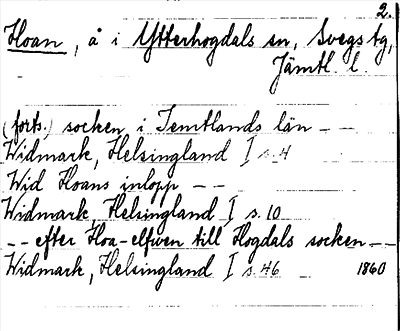 2.
Hoan, å i Ytterhogdals sn, Svegs tg,
Jämtl. l.
(forts.) socken i Jemtlands län - -
Widmark, Helsingland I s. 4
Wid Hoans inlopp - -
Widmark, Helsingland I s. 10
- - efter Hoa-elfven till Hogdals socken - -
Widmark, Helsingland I s. 46 1860